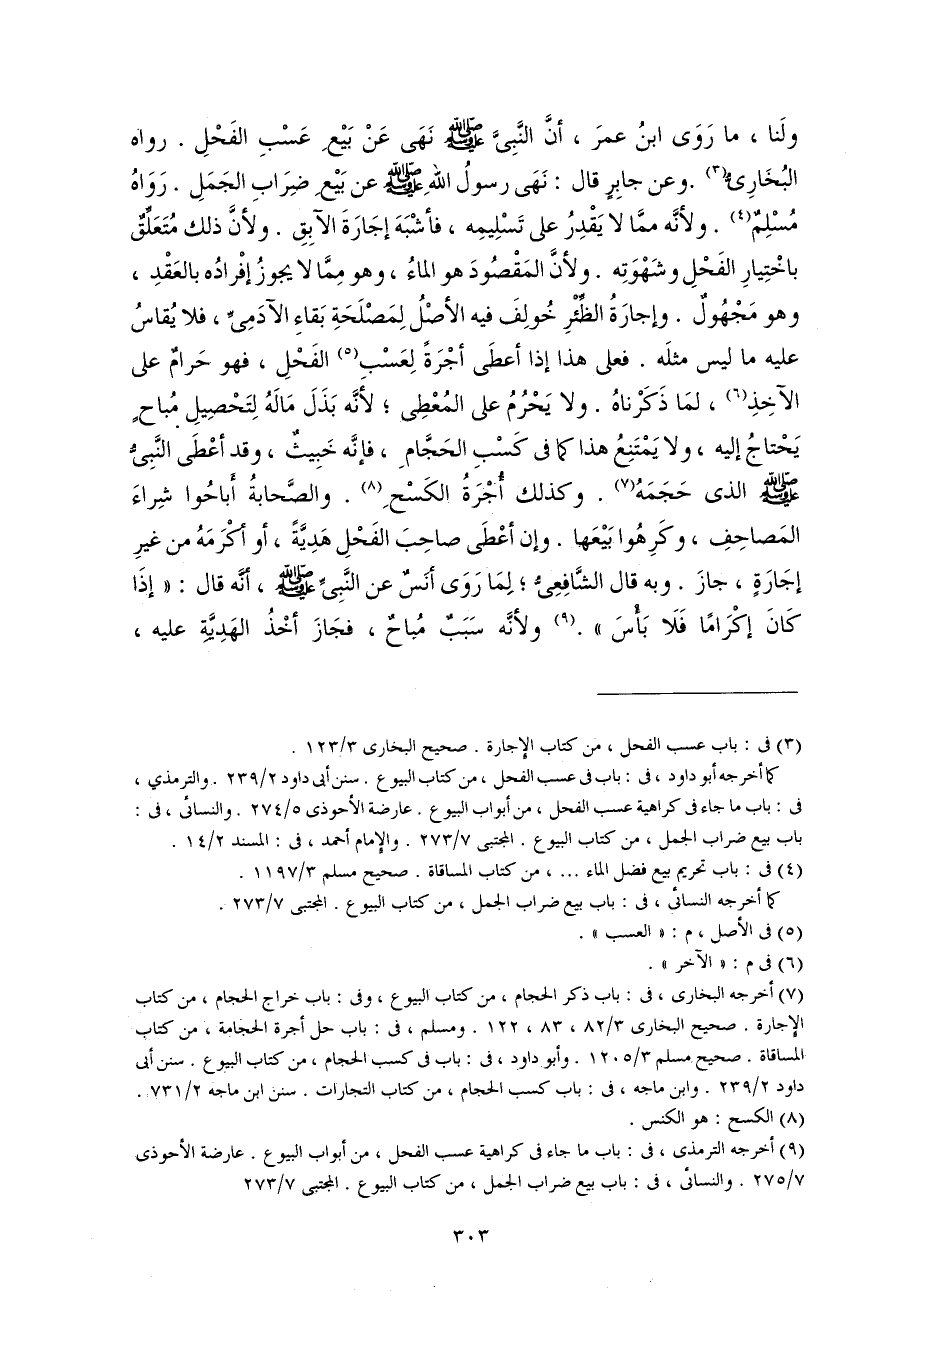 ولَنا ، ما رَوَى ابنُ عمرَ ، أنَّ النَّبِىَّ ﷺ نَهَى عَنْ بَيْعِ عَسْبِ الفَحْلِ . رواه
البُخَارِىُّ(٣) . وعن جابِرٍ قال : نَهَى رسولُ اللهِ ﷺ عن بَيْعِ ضِرَابِ الجَمَلِ . رَوَاهُ
مُسْلِمٌ(٤) . ولأنَّه ممَّا لا يَقْدِرُ على تَسْلِيمِه ، فأشْبَهَ إجَارَةَ الآبِقِ . ولأنَّ ذلك مُتَعَلِّقٌ
باخْتِيارِ الفَحْلِ وشَهْوَتِه . ولأنَّ المَقْصُودَ هو الماءُ ، وهو مِمَّا لا يجوزُ إفْرادُه بالعَقْدِ ،
وهو مَجْهُولٌ . وإجارَةُ الظِّئْرِ خُولِفَ فيه الأصْلُ لِمَصْلَحَةِ بَقاءِ الآدَمِىِّ ، فلا يُقاسُ
عليه ما ليس مثلَه . فعلى هذا إذا أعطَى أجْرَةً لِعَسْبِ(٥) الفَحْلِ ، فهو حَرامٌ على
الآخِذِ(٦) ، لمَا ذَكَرْناهُ . ولا يَحْرُمُ على المُعْطِى ؛ لأنَّه بَذَلَ مَالَهُ لِتَحْصِيلِ مُباحٍ
يَحْتاجُ إليه ، ولا يَمْتَنِعُ هذا كما فى كَسْبِ الحَجَّامِ ، فإنَّه خَبِيثٌ ، وقد أعْطَى النَّبِىُّ
ﷺ الذى حَجَمَهُ(٧) . وكذلك أُجْرَةُ الكَسْحِ(٨) . والصَّحابةُ أباحُوا شِراءَ
المَصاحِفِ ، وكَرِهُوا بَيْعَها . وإن أعْطَى صاحِبَ الفَحْلِ هَدِيَّةً ، أو أكْرَمَهُ من غيرِ
إجَارَةٍ ، جازَ . وبه قال الشَّافِعِىُّ ؛ لِمَا رَوَى أنَسٌ عن النَّبِىِّ ﷺ ، أنَّه قال : « إذَا
كَانَ إكْرَامًا فَلَا بَأْسَ » .(٩) ولأنَّه سَبَبٌ مُباحٌ ، فجَازَ أخْذُ الهَدِيَّةِ عليه ،
(٣) فى : باب عسب الفحل ، من كتاب الإجارة . صحيح البخارى ١٢٣/٣ .
كما أخرجه أبو داود ، فى : باب فى عسب الفحل ، من كتاب البيوع . سنن أبى داود ٢٣٩/٢ . والترمذي ،
فى : باب ما جاء فى كراهية عسب الفحل ، من أبواب البيوع . عارضة الأحوذى ٢٧٤/٥ . والنسائى ، فى :
باب بيع ضراب الجمل ، من كتاب البيوع . المجتبى ٢٧٣/٧ . والإمام أحمد ، فى : المسند ١٤/٢ .
(٤) فى : باب تحريم بيع فضل الماء ... ، من كتاب المساقاة . صحيح مسلم ١١٩٧/٣ .
كما أخرجه النسائى ، فى : باب بيع ضراب الجمل ، من كتاب البيوع . المجتبى ٢٧٣/٧ .
(٥) فى الأصل ، م : « العسب » .
(٦) فى م : « الآخر » .
(٧) أخرجه البخارى ، فى : باب ذكر الحجام ، من كتاب البيوع ، وفى : باب خراج الحجام ، من كتاب
الإجارة . صحيح البخارى ٨٢/٣ ، ٨٣ ، ١٢٢ . ومسلم ، فى : باب حل أجرة الحجامة ، من كتاب
المساقاة . صحيح مسلم ١٢٠٥/٣ . وأبو داود ، فى : باب فى كسب الحجام ، من كتاب البيوع . سنن أبى
داود ٢٣٩/٢ . وابن ماجه ، فى : باب كسب الحجام ، من كتاب التجارات . سنن ابن ماجه ٧٣١/٢ .
(٨) الكسح : هو الكنس .
(٩) أخرجه الترمذى ، فى : باب ما جاء فى كراهية عسب الفحل ، من أبواب البيوع . عارضة الأحوذى
٢٧٥/٧ . والنسائى ، فى : باب بيع ضراب الجمل ، من كتاب البيوع . المجتبى ٢٧٣/٧
٣٠٣